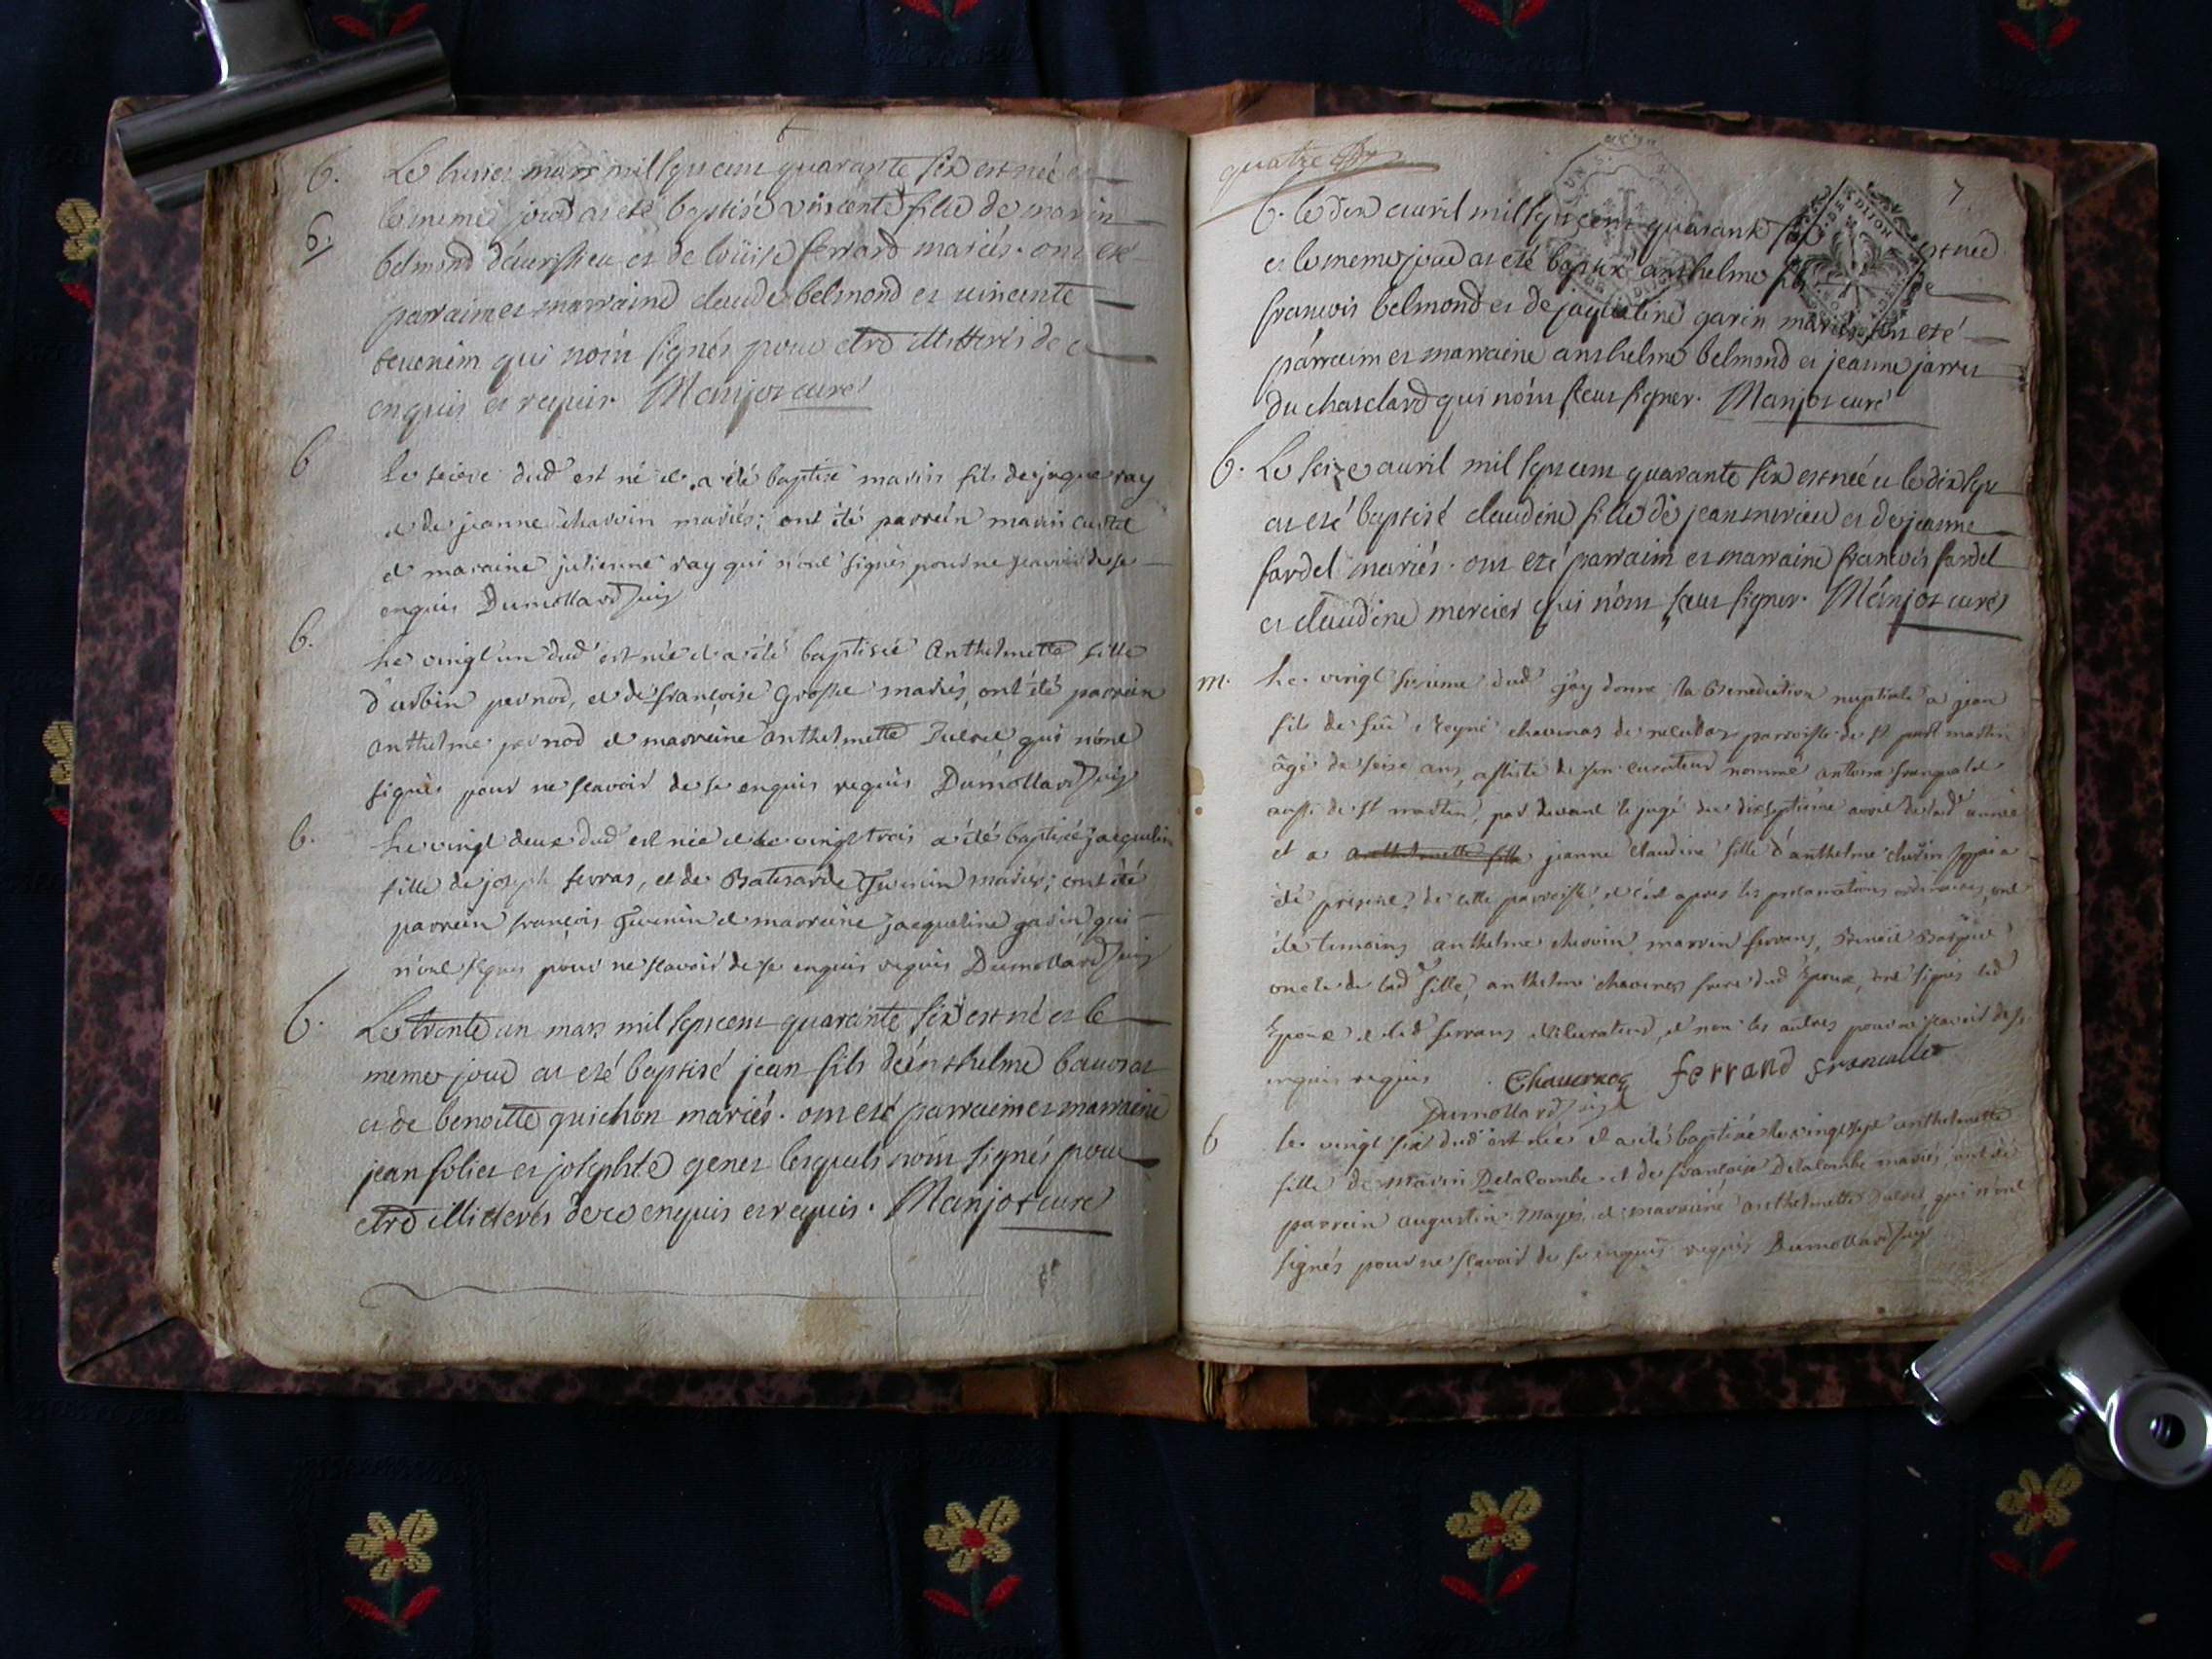 b. Le huitier mars mil sept cent quarante six est née et
b. le meme jour at eté baptisé vincente fille de marin
belmond et de loüise ferrard mariés. ont eté
parraim et marraine claude belmond et vincente
teuenim qui nóin signés pour etre illitterés de ce
enquis et requis. Manjot curé
b Le seize dud est né et a été baptisé marin fils de jaque ray
et de jeanne charvin mariés; ont été parrein marin
et maraine julienne ray qui n'ont signés pour ne sçavoir de se
enquis Dumollard
b. Le vingt un dud est née et a été baptisée Anthelmette fille
d'urbin pernod, et de françoise Grosse mariés, ont été parrein
anthelme pernod et marreine anthelmette qui n'ont
signés pour ne scavoir de se enquis requis Dumollard
b. Le vingt deux dud est née et le vingt trois a été baptisée jacqueline
fille de joseph ferras, et de mariés; ont été
parrein françois et marreine jacqueline garin, qui
n'ont signés pour ne scavoir de se enquis requis Dumollard
b. Le trente un mars mil sept cent quarante six est né et le
meme jour at eté baptisé jean fils d'enthelme
et de benoitte guichon mariés. ont eté parraim et marraine
jean folliet et josephte genet lesquels nóin signés pour
etre illitterés de ce enquis et requis. Manjot curé
quatre
7
b. le dix auril mil sept cent quarante est née
et le meme jour at eté baptisé anthelme de
francois belmond et de jaqueline garin mariés ont eté
párraim et marraine anthelme belmond et jeanne jarret
du chatelard qui nóin sceu signer. Manjot curé
b. Le seize auril mil sept cent quarante six est née et le dix sept
at eté baptisé claudine fille de jean mercier et de jeanne
fardel mariés. ont eté parraim et marraine francois fardel
et claudine mercier qui nóin sceu signer. Manjot curé
m. Le vingt sixieme dud j'ay donné la Benediction nuptiale a jean
fils de feü chavernos de parroisse de st martin
âgé de seize ans, assisté de son curateur nommé
aussi de st martin, par devant le juge du dixseptieme avril de lad année
et a jeanne claudine fille d'anthelme
de cette parroisse, et c'est apres les proclamations ordinaires, ont
été temoins anthelme charvin marin ferrand,
oncle de lad fille, anthelme chavernos frere dud Epoux, ont signés led
Epoux et led ferrand et le curateur, et non les autres pour ne scavoir de se
enquis requis Chavernoz ferrand
Dumollard
b le vingt six dud est née et a été baptisée le vingt sept anthelmette
fille de marin Delacombe et de françoise Delacombe mariés, ont été
parrein augustin et marreine anthelmette qui n'ont
signés pour ne sçavoir de se enquis requis Dumollard